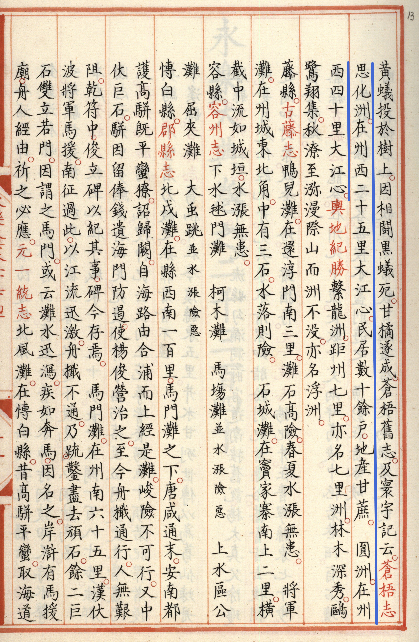 黄蟻投於樹上因相鬭黑蟻死甘橘遂成蒼梧舊志及寰宇記云蒼梧志
思化洲在州西二十五里大江心民居數十餘戶地産甘蔗 圓洲在州
西四十里大江心輿地紀勝繫龍洲距州七里亦名七里洲林木深秀鷗
鷺翔集秋潦至瀰漫際山而洲不没亦名浮洲
藤縣古藤志鴨兒灘在還淳門南三里灘石髙險春夏水漲無患 將軍
灘在州城東北角中有三石水落則險 石城灘在竇家寨南上二里横
截中流如城垣水漲無患
容縣容州志下水逩門灘 柯木灘 馬塲灘並水漲險惡 上水區公
灘 屈夾灘 大虫跳並水漲險惡
傅白縣郡縣志北戍灘在縣西南一百里馬門灘之下唐咸通末安南都
護髙駢旣平蠻獠詔歸闕自海路由合浦而上經是灘峻險不可行又中
伏巨石駢因留俸錢遺海門防遏使楊俊營治之至今舟檝通行人無艱
阻乾符中俊立碑以紀其事碑今存焉 馬門灘在州南六十五里漢伏
波將軍馬援南征過此以江流迅激舟檝不通乃疏鑿盡去頑石餘二巨
石雙立若門因謂之馬門或云灘水迅瀉疾如奔馬因名之岸滸有馬援
廟舟人經由祈之必應元一統志北風灘在愽白縣昔髙駢平蠻取海道